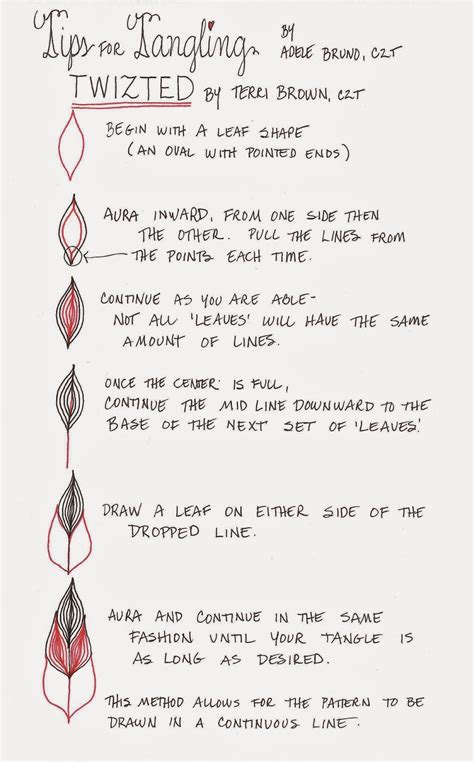 Tips for Tangling
BY
ADELE BRUNO, CZT
TWIZTED BY TERRI BROWN, CZT
BEGIN WITH A LEAF SHAPE
(AN OVAL WITH POINTED ENDS)
AURA INWARD, FROM ONE SIDE THEN
THE OTHER. PULL THE LINES FROM
THE POINTS EACH TIME.
CONTINUE AS YOU ARE ABLE-
NOT ALL 'LEAVES' WILL HAVE THE SAME
AMOUNT OF LINES.
ONCE THE CENTER IS FULL,
CONTINUE THE MID LINE DOWNWARD TO THE
BASE OF THE NEXT SET OF 'LEAVES'.
DRAW A LEAF ON EITHER SIDE OF THE
DROPPED LINE.
AURA AND CONTINUE IN THE SAME
FASHION UNTIL YOUR TANGLE IS
AS LONG AS DESIRED.
THIS METHOD ALLOWS FOR THE PATTERN TO BE
DRAWN IN A CONTINUOUS LINE.